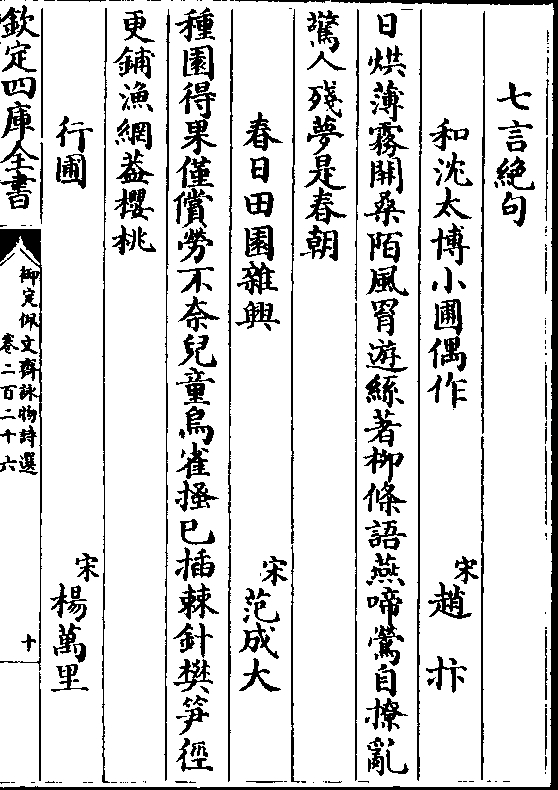 七言絶句
和沈太博小圃偶作
宋趙抃
日烘薄霧開桑陌風罥遊絲著柳條語燕啼鶯自撩亂
驚人殘夢是春朝
春日田園雜興
宋范成大
種園得果僅償勞不奈兒童烏雀搔已插棘針樊笋徑
更鋪漁網葢櫻桃
行圃
宋楊萬里
欽定四庫全書
御定佩文齋詠物詩選
卷二百二十六
十